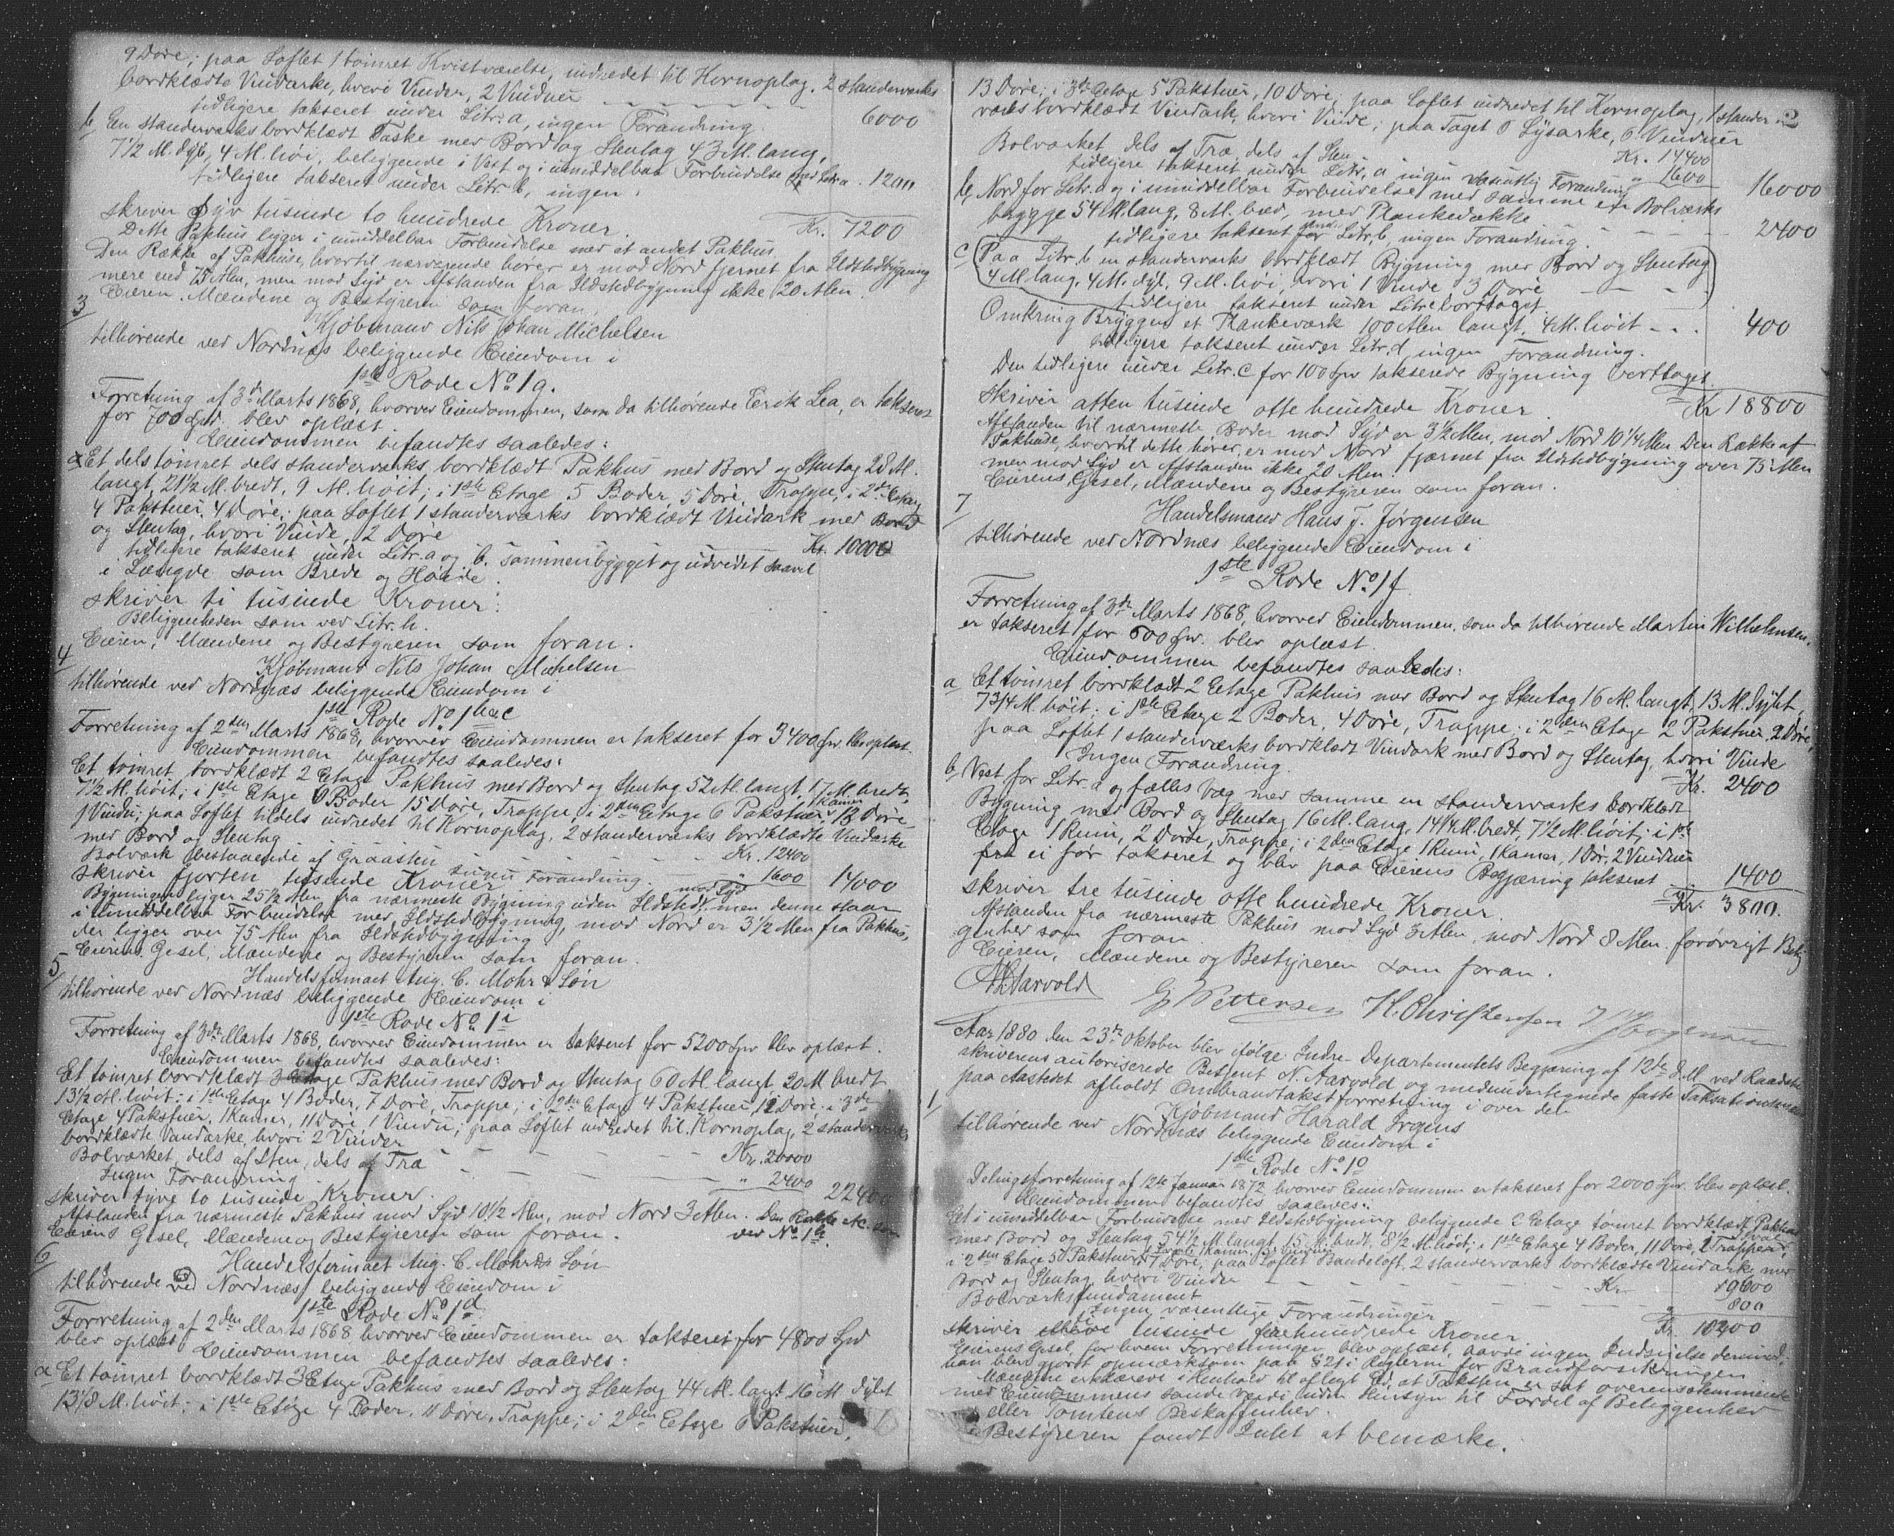 9 Døre; paa Loftet 1 tømret Kvistværelse, indredet til Kornoplag, 2 standerværks
bordklædte Vindarke, hvori Vinder, 2 Vinduer
tidligere takseret under Litr: a, ingen Forandring. 6000
b/ En standerværks bordklædt Taske med Bord og Stentag 43 Al. lang,
7 1/2 Al. dyb, 4 Al. høi, beliggende i Vest og i umiddelbar Forbindelse med Litr a. 1200
tidligere takseret under Litr. b, ingen.
skriver syv tusinde to hundrede Kroner. Kr. 7200
Dette Pakhus ligger i umiddelbar Forbindelse med et andet Pakhus
Den Række af Pakhuse, hvortil nærværende hører er mod Nord fjernet fra Ildstedbygning
mere end 75 Alen, men mod Syd er Afstanden fra Ildstedbygning ikke 20 Alen.
Eieren, Mændene og Bestyreren som foran.
3 Kjøbmand Nils Johan Michelsen
tilhørende ved Nordnæs beliggende Eiendom i
1ste Rode No 1g.
Forretning af 3die Marts 1868, hvorved Eiendommen, som da tilhørende Erik Lea, er takseret
for 700 Spd. blev oplæst.
Eiendommen befandtes saaledes:
a/ Et dels tømret dels standerværks, bordklædt Pakhus med Bord og Stentag 28 Al.
langt, 21 1/2 Al. bredt, 9 Al. høit; i 1ste Etage 5 Boder, 5 Døre, Trappe; i 2den Etage
4 Pakstuer, 4 Døre; paa Loftet 1 standerværks bordklædt Vindark med Bord
og Stentag, hvori Vinde, 2 Døre Kr. 10000
tidligere takseret under Litr. a og b. sammenbygget og udvidet saavel
i Længde som Brede og Høide.
skriver ti tusinde Kroner.
Beliggenheden som ved Litr. h.
Eieren, Mændene og Bestyreren som foran.
4 Kjøbmand Nils Johan Michelsen
tilhørende ved Nordnæs beliggende Eiendom i
1ste Rode No 1b&c
Forretning af 2den Marts 1868, hvorved Eiendommen er takseret for 3400 Spd. blev oplæst.
Eiendommen befandtes saaledes:
Et tømret bordklædt 2 Etage Pakhus med Bord og Stentag 52 Al. langt, 17 Al. bredt,
7 1/2 Al. høit; i 1ste Etage 6 Boder 15 Døre, Trappe, i 2den Etage 6 Pakstuer, 1 Kamer, 13 Døre,
1 Vindu; paa Loftet tildels indredet til Kornoplag, 2 standerværks bordklædte Vindarke
med Bord og Stentag Kr. 12400
Bolværk bestaaende af Graasten " 1600 14000
ingen Forandring.
skriver fjorten tusinde Kroner.
Bygningen ligger 25 1/2 Alen fra nærmeste Bygning uden Ildsted, mod Syd men denne staar
i umiddelbar Forbindelse med Ildstedbygning, mod Nord er 3 1/2 Alen fra Pakhus,
der ligger over 75 Alen fra Ildstedbygning
Eierens Gesel, Mændene og Bestyreren som foran.
5 Handelsfirmaet Aug. C. Mohr & Søn
tilhørende ved Nordnæs beliggende Eiendom i
1ste Rode No 1i
Forretning af 3die Marts 1868, hvorved Eiendommen er takseret for 5200 Spd blev oplæst.
Eiendommen befandtes saaledes:
Et tømret bordklædt 3 Etage Pakhus med Bord og Stentag 60 Al. langt 20 Al. bredt
13 1/2 Al. høit; i 1ste Etage 4 Boder, 7 Døre, Trappe; i 2den Etage 4 Pakstuer, 12 Døre; i 3die
Etage 4 Pakstuer, 1 Kamer, 11 Døre, 1 Vindu; paa Loftet indredet til Kornoplag, 2 standerværks
bordklædte Vindarke, hvori 2 Vinder Kr. 20000
Bolværket, dels af Sten, dels af Træ " 2400 22400
Ingen Forandring.
skriver tyve to tusinde Kroner.
Afstanden fra nærmeste Pakhus mod Syd 10 1/2 Alen, mod Nord 3 Alen. Den Række &c. som
Eierens Gesel, Mændene og Bestyreren som foran. ved No 1h.
6 Handelsfirmaet Aug. C. Mohr & Søn
tilhørende ved Nordnæs beliggende Eiendom i
1ste Rode No 1d.
Forretning af 2den Marts 1868 hvorved Eiendommen er takseret for 4800 Spd
blev oplæst. Eiendommen befandtes saaledes:
a Et tømret bordklædt 3 Etage Pakhus med Bord og Stentag 44 Al. langt 16 Al. dybt
13 1/2 Al. høit; i 1ste Etage 4 Boder, 11 Døre, Trappe; i 2den Etage 6 Pakstuer,
2
13 Døre; i 3die Etage 5 Pakstuer, 10 Døre; paa Loftet indredet til Kornoplag, 1 stander
værks bordklædt Vindark, hvori Vinde; paa Taget 6 Lysarke, 6 Vinduer
Kr. 14400
Bolværket dels af Træ, dels af Sten " 1600 16000
tidligere takseret under Litr. a ingen væsentlig Forandring
b, Nord for Litr. a og i umiddelbar Forbindelse med samme en Bolværks
brygge 54 Al. lang, 8 Al. bred, med Plankedække 2400
tidligere takseret under Litr. b, ingen Forandring.
c Paa Litr. b en standerværks bordklædt Bygning med Bord og Stentag
4 Al. lang, 4 Al. dyb, 9 Al. høi, hvori 1 Vinde 3 Døre
tidligere takseret under Litr e borttaget.
Omkring Bryggen et Plankeværk 100 Alen langt, 4 Al. høit 400
tidligere takseret under Litr. d, ingen Forandring.
Den tidligere under Litr. c for 100 Spd takserede Bygning borttaget.
skriver atten tusinde otte hundrede Kroner. Kr 18800
Afstanden til nærmeste Boder mod Syd er 3 1/2 Alen, mod Nord 10 1/4 Alen. Den Række af
Pakhuse, hvortil dette hører, er mod Nord fjærnet fra Ildstedbygning over 75 Alen
men mod Syd er Afstanden ikke 20 Alen.
Eierens Gesel, Mændene og Bestyreren som foran.
7 Handelsmand Hans J. Jørgensen
tilhørende ved Nordnæs beliggende Eiendom i
1ste Rode No 1f.
Forretning af 3die Marts 1868, hvorved Eiendommen, som da tilhørende Martin Wilhelmsen,
er takseret for 600 Spd. blev oplæst.
Eiendommen befandtes saaledes:
a Et tømret bordklædt 2 Etage Pakhus med Bord og Stentag 16 Al. langt, 13 Al. dybt,
7 3/4 Al. høit; i 1ste Etage 2 Boder, 4 Døre, Trappe; i 2den Etage 2 Pakstuer, 2 Døre,
paa Loftet 1 standerværks bordklædt Vindark med Bord og Stentag, hvori Vinde
Ingen Forandring. Kr. 2400
b, Vest for Litr. a og fælles Væg med samme en standerværks bordklædt
Bygning med Bord og Stentag 16 Al. lang, 14 1/4 Al. bredt, 7 1/2 Al. høit; i 1ste
Etage 1 Rum, 2 Døre, Trappe; i 2den Etage 1 Rum, 1 Kamer, 1 Dør, 2 Vinduer
ei før takseret og blev paa Eierens Begjæring takseret 1400
skriver tre tusinde otte hundrede Kroner. Kr. 3800.
Afstanden fra nærmeste Pakhus mod Syd 3 Alen, mod Nord 8 Alen. forøvrigt Belig-
genhed som foran
Eieren, Mændene og Bestyreren som foran.
N. Aarvold G. Pettersen H. Christensen
Aar 1880 den 23de Oktober blev ifølge Indre-Departementets Begjæring af 12te d. M. ved Raadstu
skriverens autoriserede Betjent N. Aarvold og medundertegnede faste Taksationsmænd
paa Aastedet afholdt Ombrandtakstforretning i over den
1, Kjøbmand Harald Irgens
tilhørende ved Nordnæs beliggende Eiendom i
1ste Rode No 1o
Delingsforretning af 12te Januar 1872 hvorved Eiendommen er takseret for 2000 Spd. blev oplæst.
Eiendommen befandtes saaledes:
Et i umiddelbar Forbindelse med Ildstedbygning beliggende 2 Etage tømret bordklædt Pakhus
med Bord og Stentag 54 1/2 Al. langt 15 Al. bredt, 8 1/2 Al. høit; i 1ste Etage 4 Boder, 11 Døre, 2 Trapper,
i 2den Etage 5 Pakstuer, 1 Kamer, 7 Døre, paa Loftet Bandeloft, 2 standerværks bordklædte Vindarke med
Bord og Stentag hvori Vinder Kr. 9600
Bolværksfundament 800
Ingen væsentlige Forandringer
skriver tusinde fire hundrede Kroner. Kr. 10400
Eierens Gesel, for hvem Forretningen blev oplæst, havde ingen Indsigelse derimod,
han blev gjort opmærksom paa § 21 i Reglerne for Brandforsikringen
Mændene erklærede i Henhold til aflagt Ed, at Taksten er sat overensstemmende
med Eiendommens sande Værdi uden Hensyn til Fordel af Beliggenhed
eller Tomtens Beskaffenhed.
Bestyreren fandt Intet at bemærke.